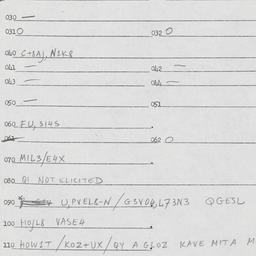 030 —
031 O 032 O
040 C+1AJ, N1K8
041 — 042 —
043 — 044 —
050 — 051
060 FU, S14S
062 O
070 M1L3/E4X
080 Q1 NOT ELICITED
090 U, PVEL8-N / G3V04, L73N3 QGE5L
100 H0JL8 VASE4
110 HOW1T / KOZ+UX / QY A GLOZ KAVE MITA M